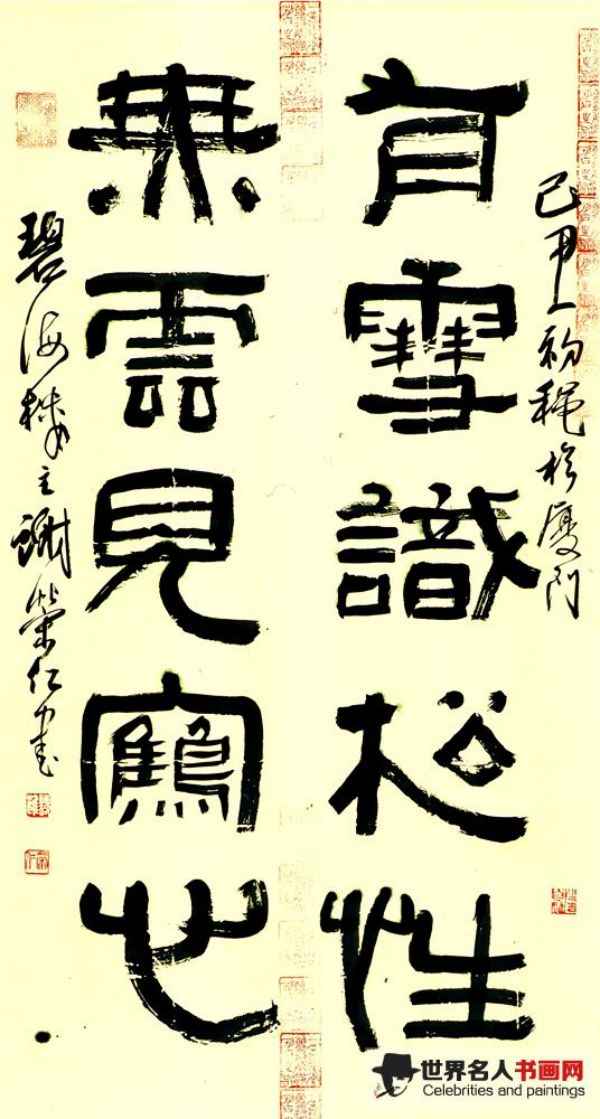 己丑初穐於廈門
有雪識松性
無雲見鶴心
碧海主謝榮仁書
世界名人书画网
Celebrities and paintings